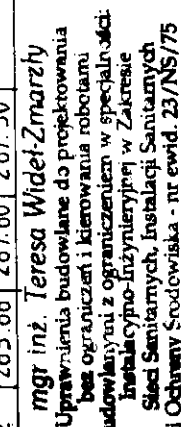 265.60 267.60 267.50
mgr inż. Teresa Widet-Zmarzły
Uprawnienia budowlane do projektowania
bez ograniczeń i kierowania robotami
udowlanymi z ograniczeniem w specjalności:
Instalacyjno-Inżynieryjnej w Zakresie
Sieci Sanitarnych, Instalacji Sanitarnych
i Ochrony Środowiska - nr ewid. 23/NS/75